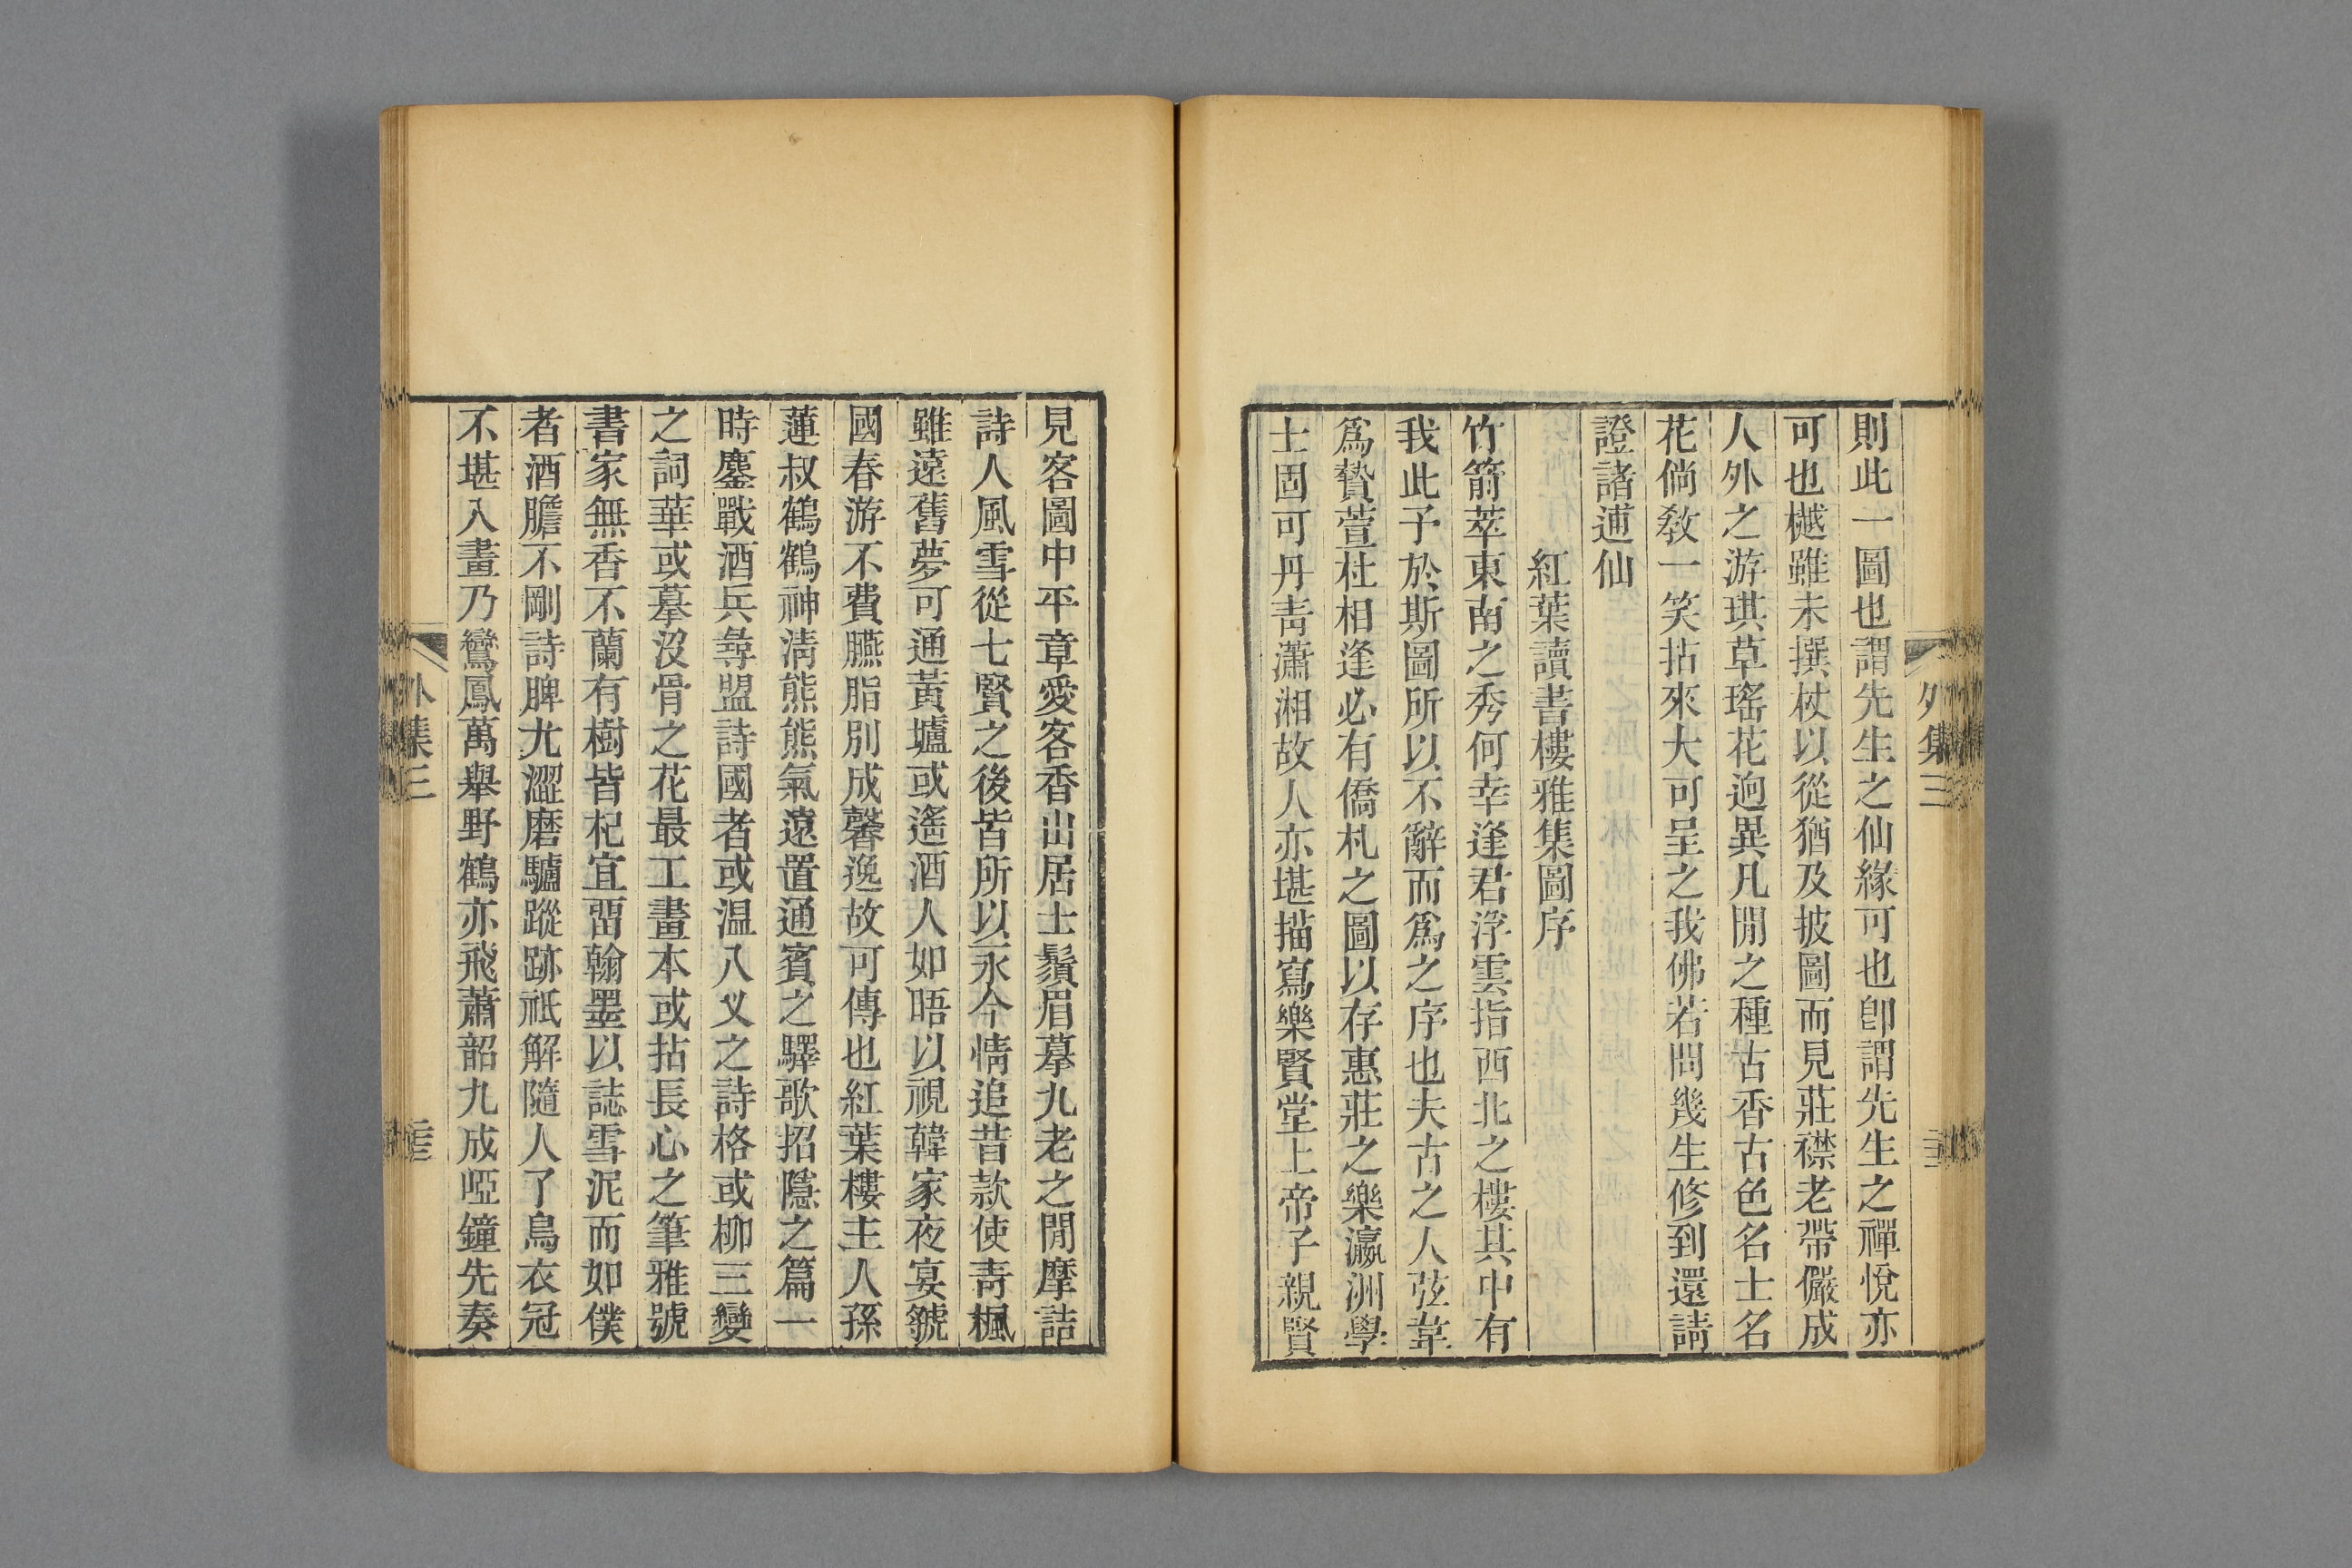 則此一圖也謂先生之仙緣可也卽謂先生之禪悅亦
可也樾雖未撰杖以從猶及披圖而見莊襟老帶儼成
人外之游琪草瑤花逈異凡閒之種古香古色名士名
花倘敎一笑拈來大可呈之我佛若問幾生修到還請
證諸逋仙
紅葉讀書樓雅集圖序
竹箭萃東南之秀何幸逢君浮雲指西北之樓其中有
我此予於斯圖所以不辭而爲之序也夫古之人弦韋
爲贄萱杜相逢必有僑札之圖以存惠莊之樂瀛洲學
士固可丹靑瀟湘故人亦堪描寫樂賢堂上帝子親賢
外集三
見客圖中平章愛客香山居士鬚眉摹九老之閒摩詰
詩人風雪從七賢之後皆所以永今情追昔款使靑楓
雖遠舊夢可通黃壚或遙酒人如晤以視韓家夜宴虢
國春游不費臙脂別成馨逸故可傳也紅葉樓主人孫
蓮叔鶴鶴神淸熊熊氣遠置通賓之驛歌招隱之篇一
時鏖戰酒兵尋盟詩國者或温八义之詩格或柳三變
之詞華或摹沒骨之花最工畫本或拈長心之筆雅號
書家無香不蘭有樹皆杞宜畱翰墨以誌雪泥而如僕
者酒膽不剛詩脾尤澀磨驢蹤跡祇解隨人了鳥衣冠
不堪入畫乃鸞鳳萬舉野鶴亦飛蕭韶九成啞鐘先奏
外集三